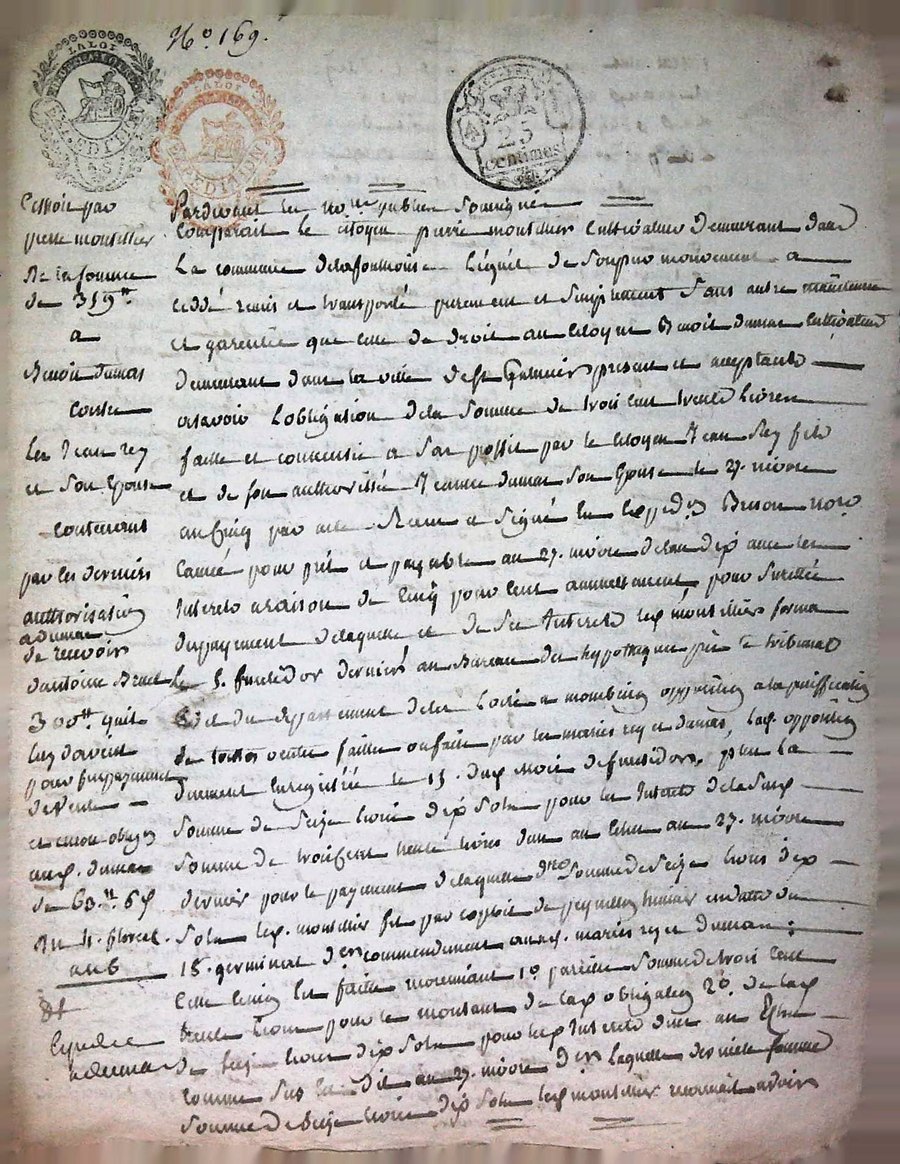 No. 169.
LA LOI
LA LOI
25
centimes
Cession par
pierre montillier
De la somme
de 319tt
a
Benoit dumas
Contre
Les Jean rey
et Son Epouse
contenant
par les derniers
authorisation
a dumas
de recevoir
d'antoine
300tt qu'il
leur doivent
pour
de vente
et encore oblig
aud. dumas
de 63.tt 6s
Du 4. floreal.
an 6
Expediée
a dumas
Pardevant les no.res publics Soussignés
Comparait le citoyen pierre montillier Cultivateur Demeurant dans
La commune delafouillouse Lequel de Son plein mouvement a
ceddé remis et transporté purement et Simplement Sans autre maintenue
et garentie que celle de droit au Citoyen Benoit dumas Cultivateur
Demeurant dans la ville de St Galmier present et acceptant
assavoir Lobligation dela Somme de trois Cent trente Livres
faitte et consentie a Son proffit par le Citoyen Jean Rey fils
et de Son authorisée Jeanne dumas Son Epouse le 27. nivose
an Cinq par acte Recu et Signé
Causée pour prêt et payable au 27. nivose delan dix avec les
Interets a raison de Cinq pour Cent annuellement, pour Surettée
du payement delaquelle et de Ses Interets led montillier forma
le 5. fructidor dernier au Bureau des hypotheques près le tribunal
Civil du departement dela Loire a montbrison opposition a la purification
de toutes ventes faittes ou a faire par les mariés rey et dumas, lad. opposition
Duement Enregistrée le 15. dud. mois de fructidor, plus la
Somme de Seize livres dix Sols pour les Interets de lad.
Somme de trois Cent trente livres d'un an Echu au 27. nivose
dernier pour le payement delaquelle d.re Somme de Seize livres dix
Sols led. montillier fit par exploit de huissier en datte du
15. germinal d.er commandement auxd. mariés rey et dumas;
Cette Cession Est faitte moyennant 1o. pareille Somme de trois Cent
trente Livres pour le montant de lad. obligation 2o. de lad.
de Seize livres dix Sols pour les Interets d'un an Echu
comme Sus Est Dit au 27. nivose d.er laquelle derniere Somme
Somme de Seize livres dix Sols led. montillier reconnait avoir